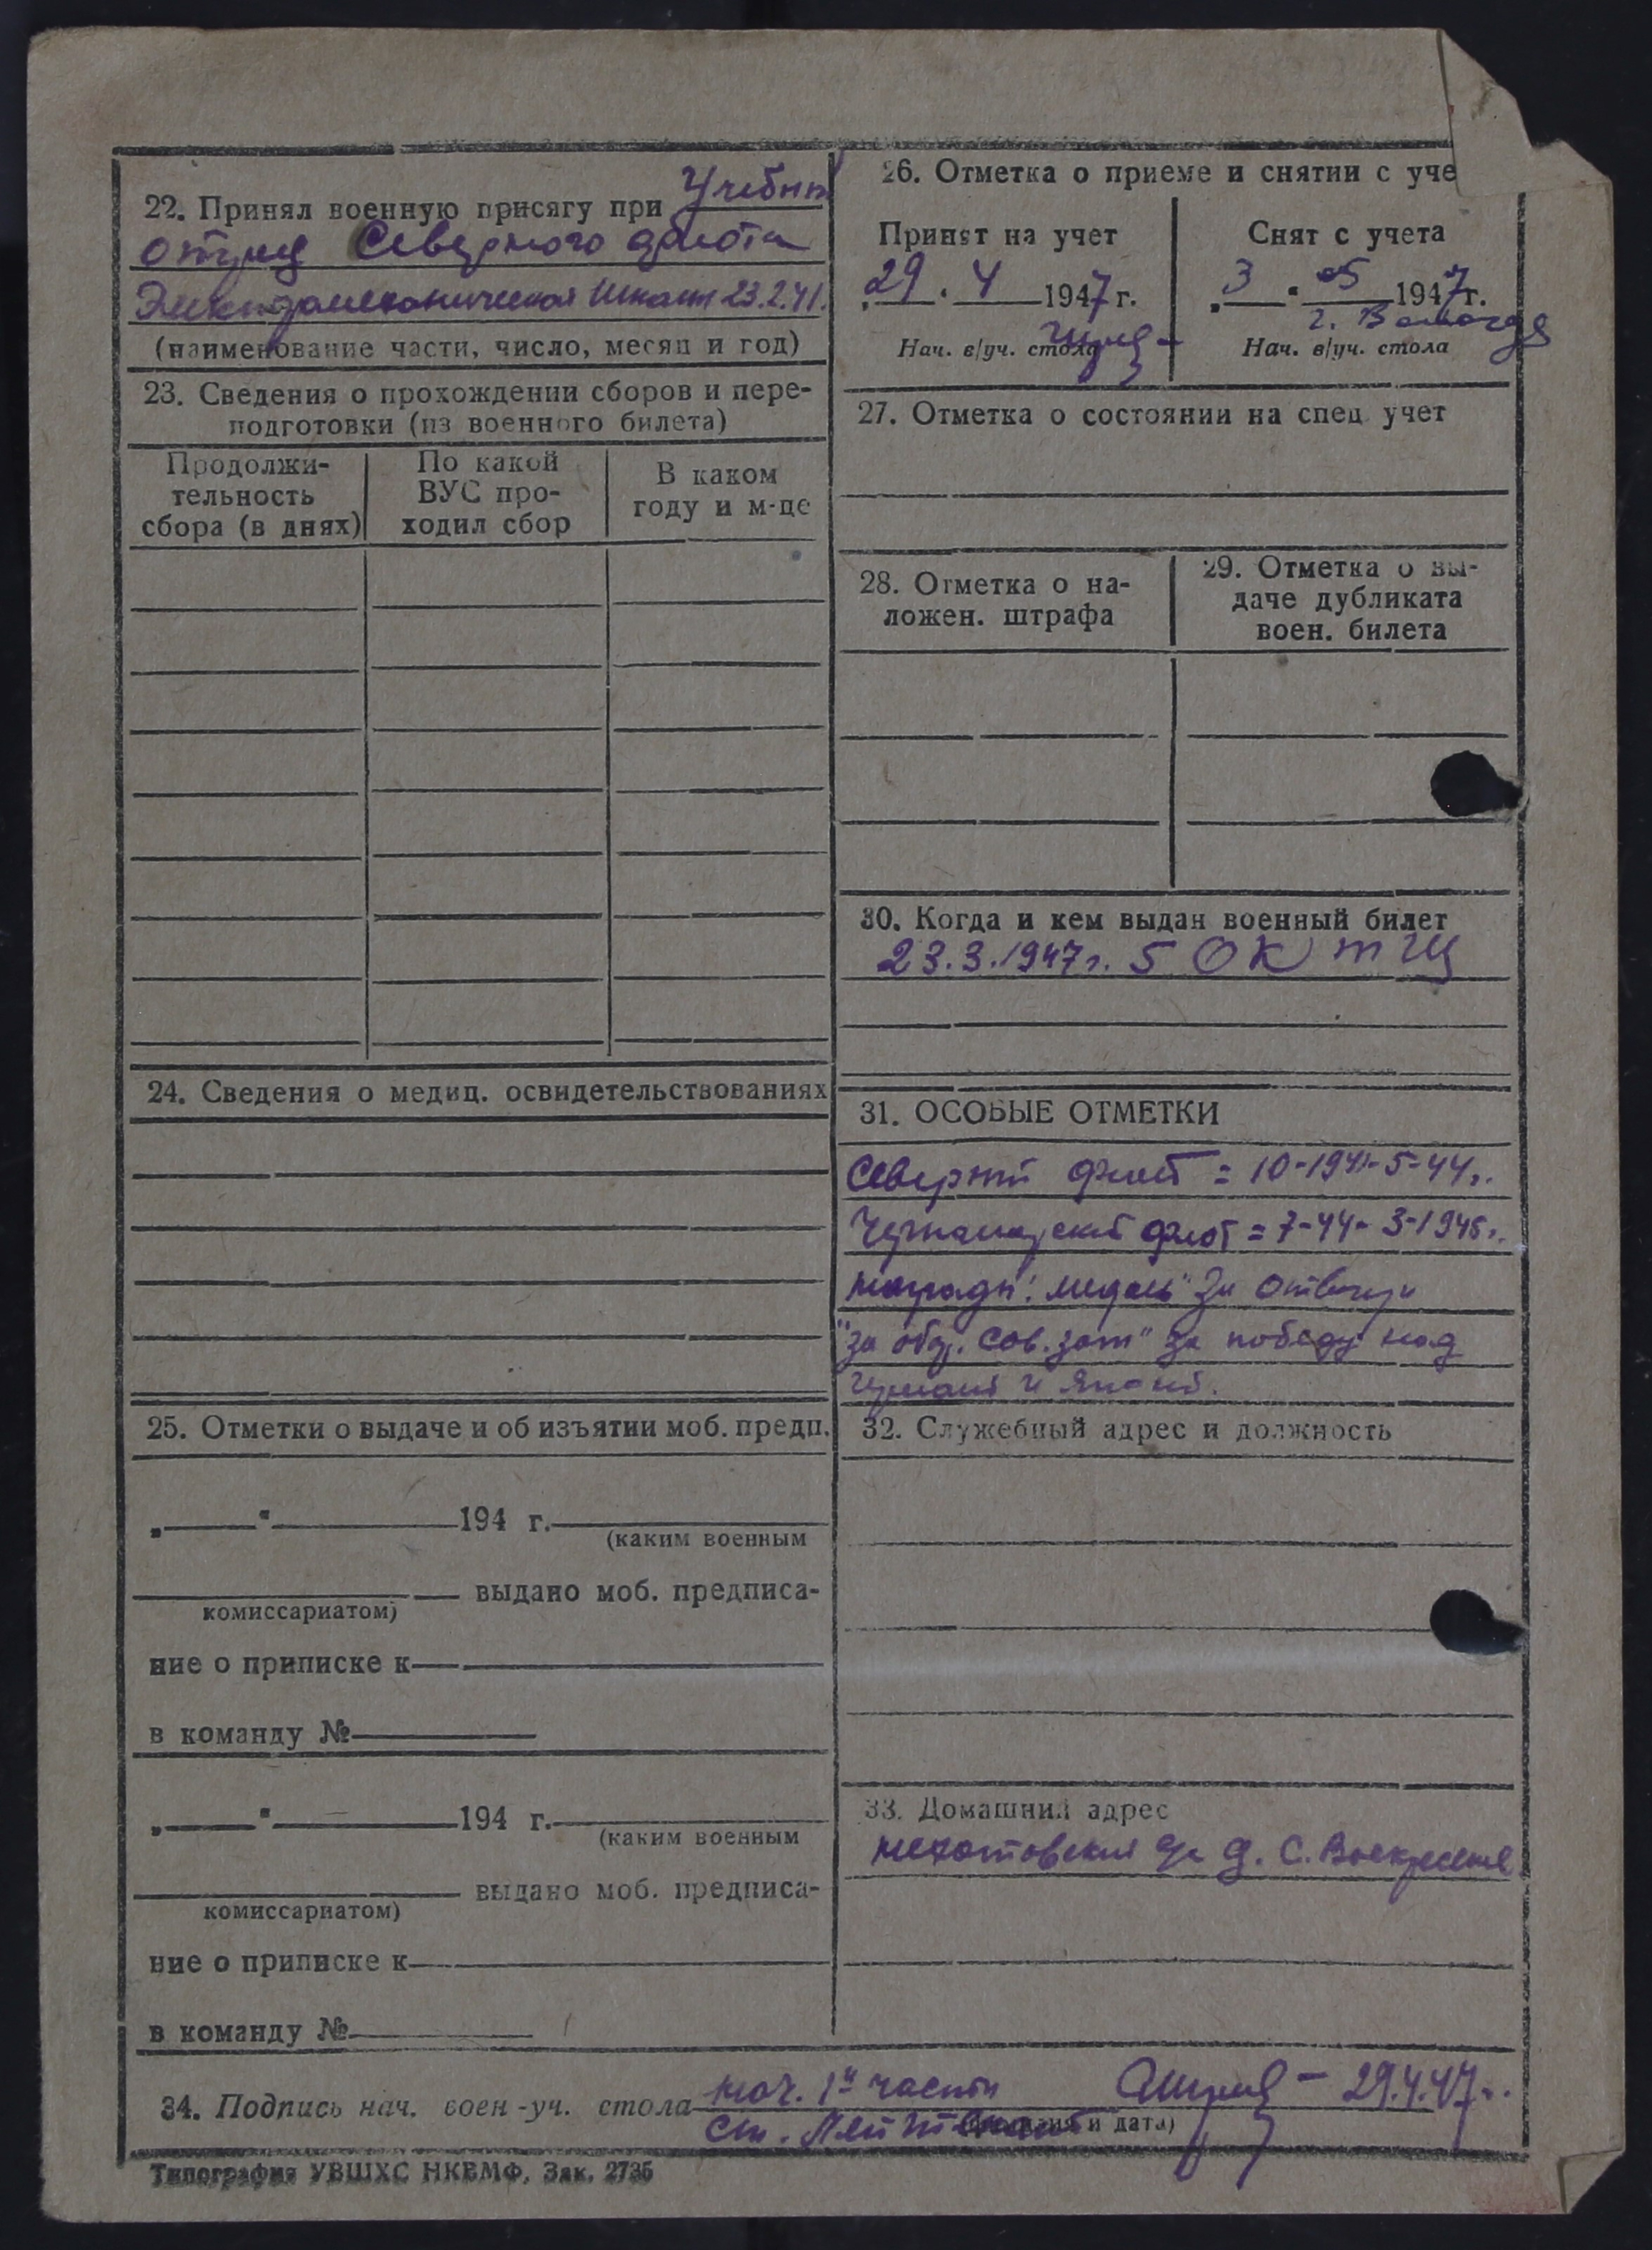 22. Принял военную присягу при Учебны
отряд Северного флота
Электромеханическая Школа 23.2.41.
(наименование части, число, месяц и год)
23. Сведения о прохождении сборов и пере-
подготовки (из военного билета)
Продолжи-
тельность
сбора (в днях)
По какой
ВУС про-
ходил сбор
В каком
году и м-це
24. Сведения о медиц. освидетельствованиях
25. Отметки о выдаче и об изъятии моб. предп.
„ “ 194 г.
(каким военным
выдано моб. предписа-
комиссариатом)
ние о приписке к
в команду №
„ “ 194 г.
(каким военным
выдано моб. предписа-
комиссариатом)
ние о приписке к
в команду №
26. Отметка о приеме и снятии с уче
Принят на учет
„29 “ 4 1947 г.
Нач. в/уч. стола
Снят с учета
„3 “ 05 1947 г.
г. Вологда
Нач. в/уч. стола
27. Отметка о состоянии на спец учет
28. Отметка о на-
ложен. штрафа
29. Отметка о вы-
даче дубликата
воен. билета
30. Когда и кем выдан военный билет
23.3.1947г. 5 ОК ТЩ
31. ОСОБЫЕ ОТМЕТКИ
Северный флот = 10-1941-5-44г.
Черноморский флот = 7-44-3-1945г.
награды: медаль "За отвагу
"за обор. Сов. зап" за победу над
Германией и Японией.
32. Служебный адрес и должность
33. Домашний адрес
д. С. Воскресенье
34. Подпись нач. воен-уч. стола нач. 1й части 29.4.47г.
Ст. Лейтенант и дата)
Типография УВШХС НКВМФ, Зак. 2735